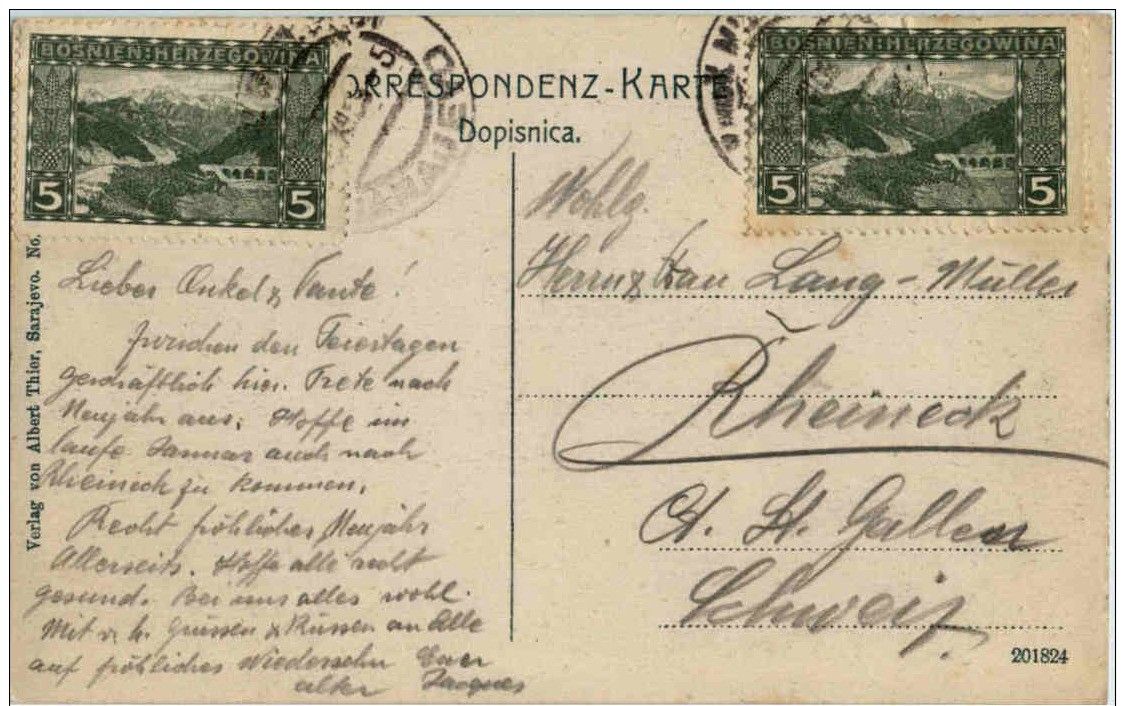 BOSNIEN-HERZEGOWINA
5 5
BOSNIEN-HERZEGOWINA
5 5
SARAJEVO
ORRESPONDENZ-KARTE
Dopisnica.
Verlag von Albert Thier, Sarajevo. No.
Lieber Onkel & Tante!
Zwischen den Feiertagen
geschäftlich hier. Trete nach
Neujahr aus. Hoffe im
laufe Januar auch nach
Rheineck zu kommen.
Recht fröhliches Neujahr
Allerseits. Hoffe alle recht
gesund. Bei uns alles wohl.
Mit v. h. Grüssen & Küssen an Alle
auf fröhliches Wiedersehn Euer
alter Jacques
Wohlg.
Herrn & Frau Lang-Müller
Rheineck
Ct. St. Gallen
Schweiz.
201824